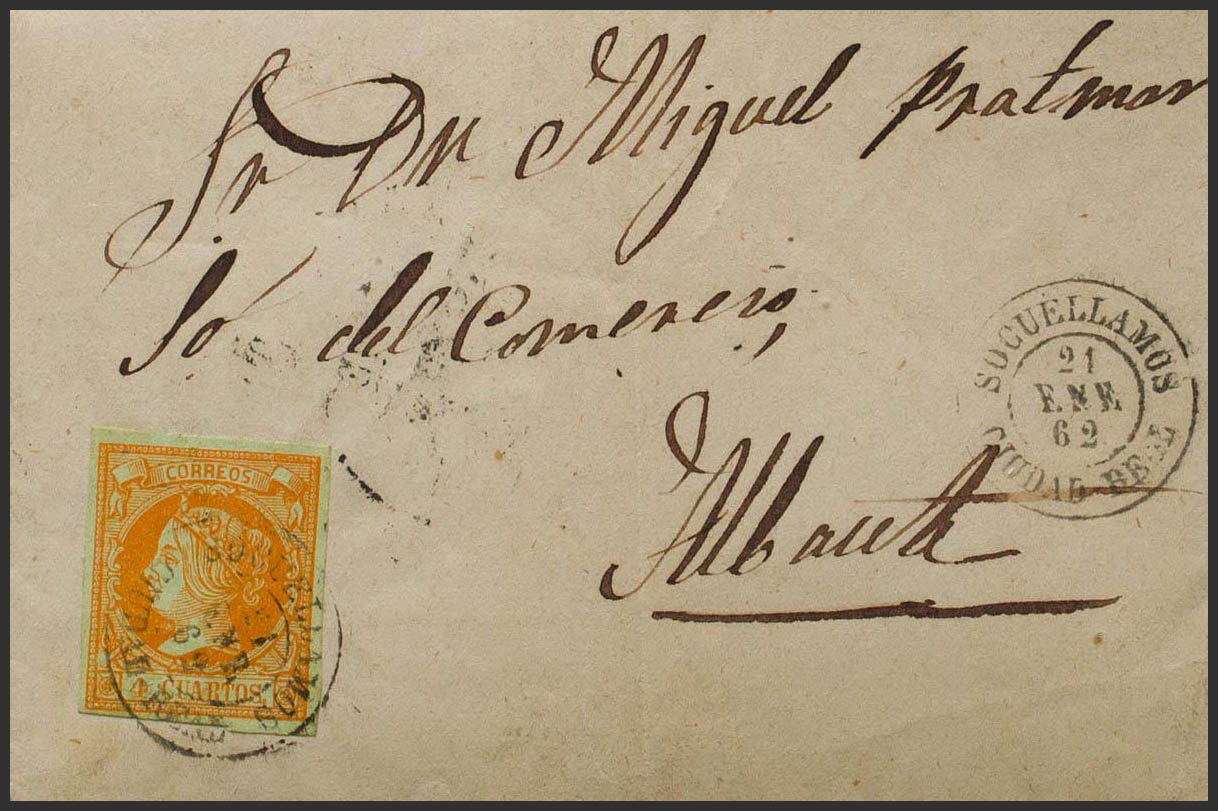 Sr Dn Miguel Pratmar
So del Comercio,
Albacete
SOCUELLAMOS
21
ENE
62
CIUDAD REAL
CORREOS
4 CUARTOS